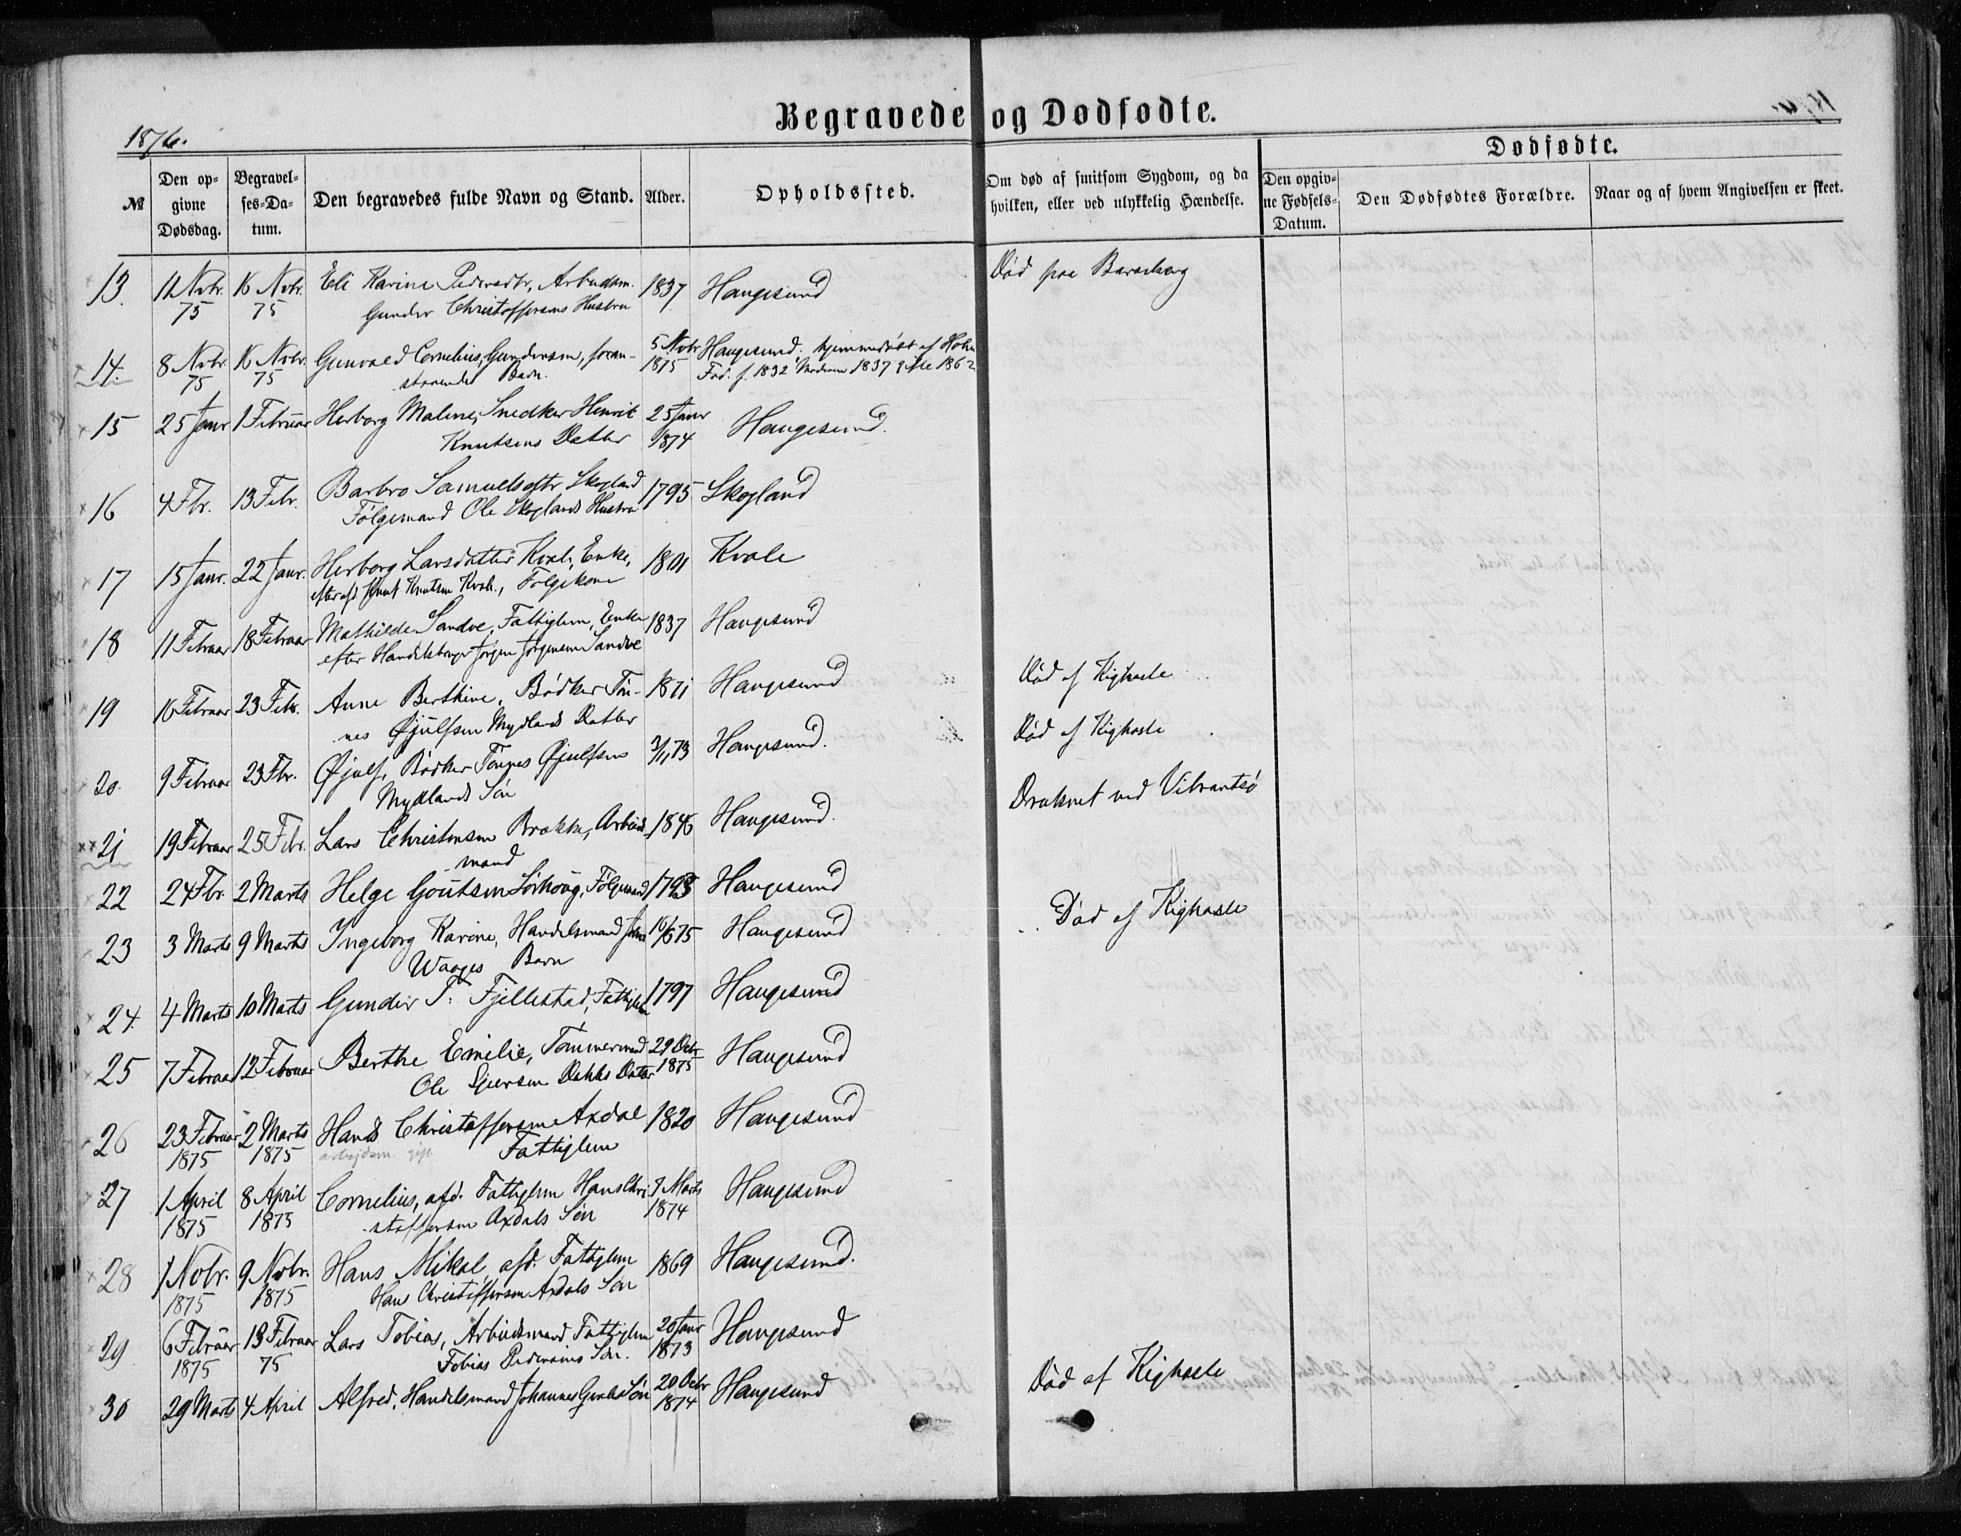 Begravede og Dødfødte.
1876.
Dødfødte.
№
Den opgivne Dødsdag.
Begravelses-Datum.
Den begravedes fulde Navn og Stand.
Alder.
Opholdssted.
Om død af smitsom Sygdom, og da hvilken, eller ved ulykkelig Hændelse.
Den opgivne Fødsels-Datum.
Den Dødfødtes Forældre.
Naar og af hvem Angivelsen er skeet.
13. 11 Novbr. 16 Novbr. Eli Karine Pedersdtr, Arbeidsm. 1837 Haugesund Død paa Barselseng
75 75 Gunder Christoffersens Hustru
14. 8 Novbr. 16 Novbr. Gunvald Cornelius Gundersen, foran- 5 Novbr Haugesund, hjemmedøbt af
75 75 staaendes Barn. 1875 Fad. f. 1832 Moderen 1837 gifte 1862
15 25 Janr 1 Februar Herborg Maline, Snedker Henrik 25 Janr Haugesund.
Knutsens Datter 1874
16 4 Fbr. 13 Febr. Barbro Samuelsdtr Skogland 1795 Skogland
Følgemand Ole Skoglands Hustru
17 15 Janr. 22 Janr. Herborg Larsdatter Kvale, Enke, 1801 Kvale
efter afd Knut Knutsen Kvale, Følgekone
18 11 Februar 18 Februar Mathilde Sandve, Fattiglem, Enke 1837 Haugesund
efter Handelsborger Jørgen Jørgensen Sandve
19 16 Februar 23 Febr. Anne Berthine, Bødker Tøn- 1871 Haugesund Død af Kighoste
nes Øjulfsen Mydlands Datter
20. 9 Februar 23 Fbr. Øjulf, Bødker Tønnes Øjulfsen 3/11 73 Haugesund. Død af Kighoste
Mydlands Søn
21 19 Februar 25 Febr. Lars Christensen Brække, Arbeids- 1846 Haugesund. Druknet ved Vibrantsø
mand
22 24 Fbr. 2 Marts Helge Goutsen Sørhoug, Følgemand 1793 Haugesund
23 3 Marts 9 Marts Ingeborg Karine, Handelsmand John 16/6 75 Haugesund Død af Kighoste
Waages Barn
24. 4 Marts 10 Marts Gunder T. Fjellestad, Fattiglem 1797 Haugesund
25 7 Februar 12 Februar Berthe Emilie, Tømmermand 29 Octr Haugesund
Ole Sjursen Døkkes Datter 1875
26 23 Februar 2 Marts Hans Christoffersen Axdal 1820 Haugesund
1875 1875 arbejdsm. gift Fattiglem
27 1 April 8 April Cornelius, afd. Fattiglem Hans Chri- 7 Marts Haugesund
1875 1875 stoffersen Axdals Søn 1874
28 1 Nobr. 9 Nobr. Hans Mikal, afd. Fattiglem 1869 Haugesund.
1875 1875 Hans Christoffersen Axdals Søn
29 6 Februar 13 Februar Lars Tobias, Arbeidsmand Fattiglem 20 Janr Haugesund
1875 75 Tobias Pedersens Søn. 1873
30 29 Marts 4 April Alfred, Handelsmand Johannes Søn 20 Octr Haugesund Død af Kighoste
1874